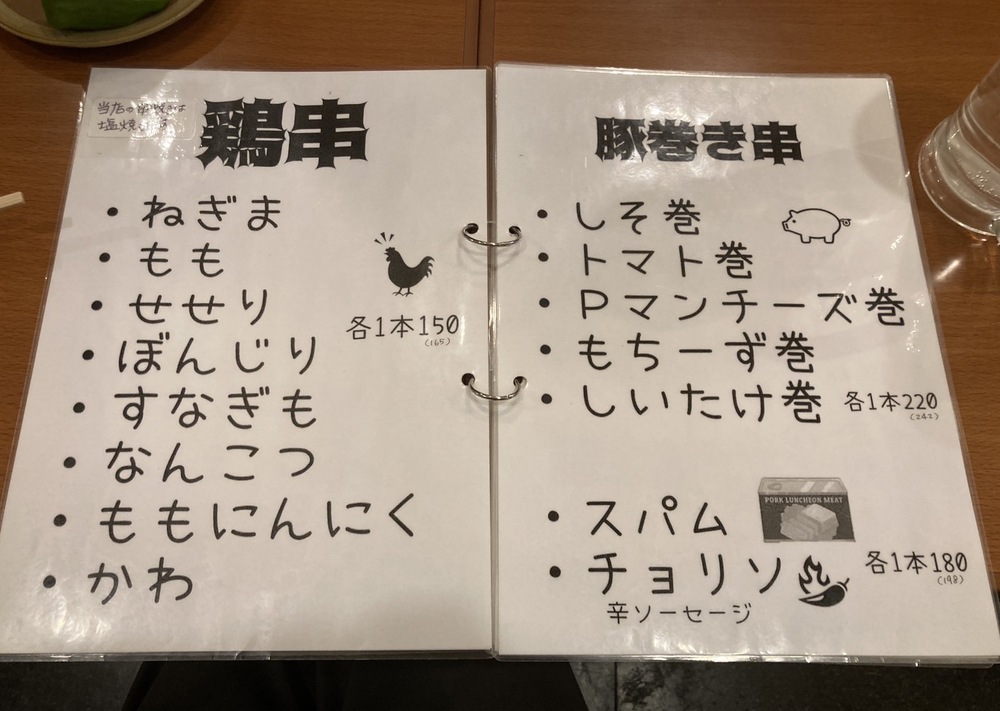 当店の串焼きは
塩焼
鶏串
・ねぎま
・もも
・せせり
・ぼんじり
・すなぎも
・なんこつ
・ももにんにく
・かわ
各1本150
(165)
豚巻き串
・しそ巻
・トマト巻
・Pマンチーズ巻
・もちーず巻
・しいたけ巻
各1本220
(242)
・スパム
PORK LUNCHEON MEAT
・チョリソ
辛ソーセージ
各1本180
(198)